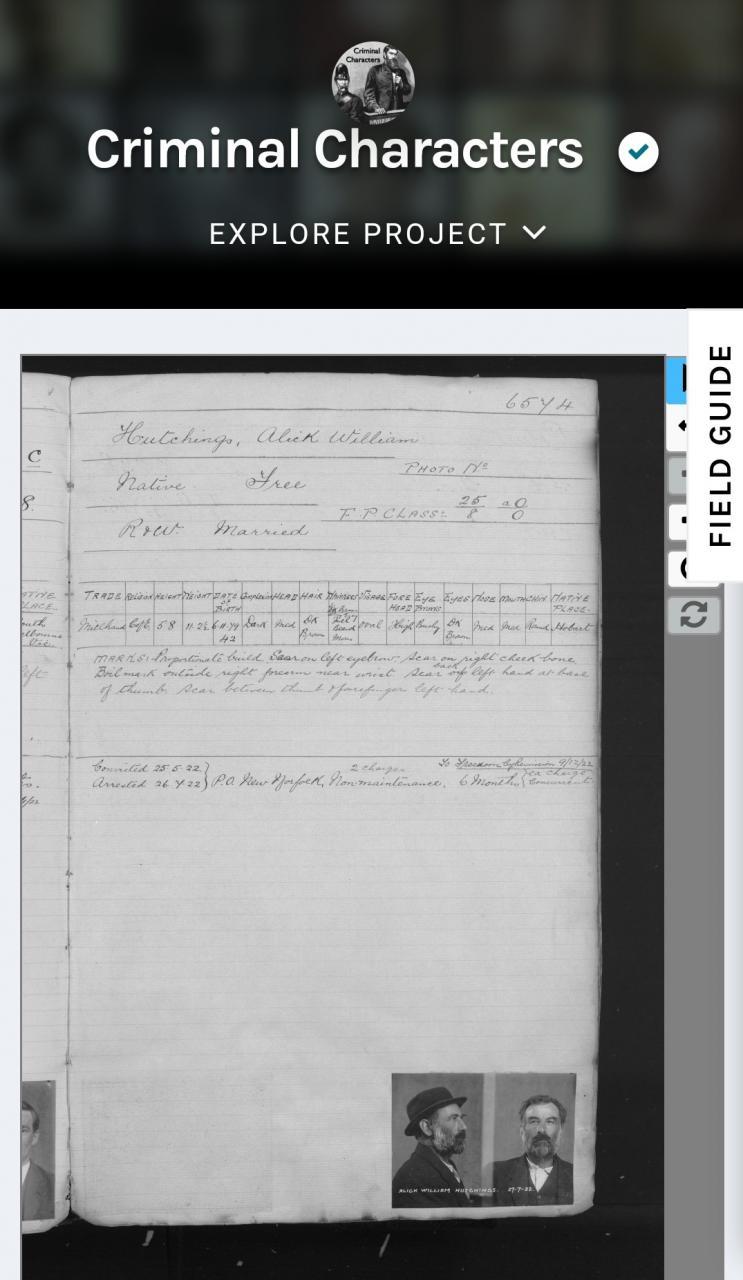 Criminal
Characters
Criminal Characters
EXPLORE PROJECT
FIELD GUIDE
6574
C
Hutchings, Alick William
PHOTO No
Native Free
8.
F.P. CLASS: 25/8 a0/0
R & W. Married
TRADE Religion HEIGHT WEIGHT DATE of BIRTH Complexion HEAD HAIR Whiskers VISAGE FOREHEAD EYE Brows EYES NOSE MOUTH CHIN NATIVE PLACE.
Millhand 5 8 Dark med DK Brown oval High Bushy DK Brown Med Med Round Hobart
42
MARKS: Proportionate build, Scar on left eyebrow, scar on right cheek bone
Boil mark outside right forearm near wrist scar back of left hand at base
of thumb. Scar between thumb & forefinger left hand.
Convicted 25·5·22 2 charges To Freedom By Remission 9/12/22
Arrested 26 4 22 P.O. New Norfolk, Non-maintenance, 6 Months ea charge Concurrent
ALICK WILLIAM HUTCHINGS. 27-7-22.